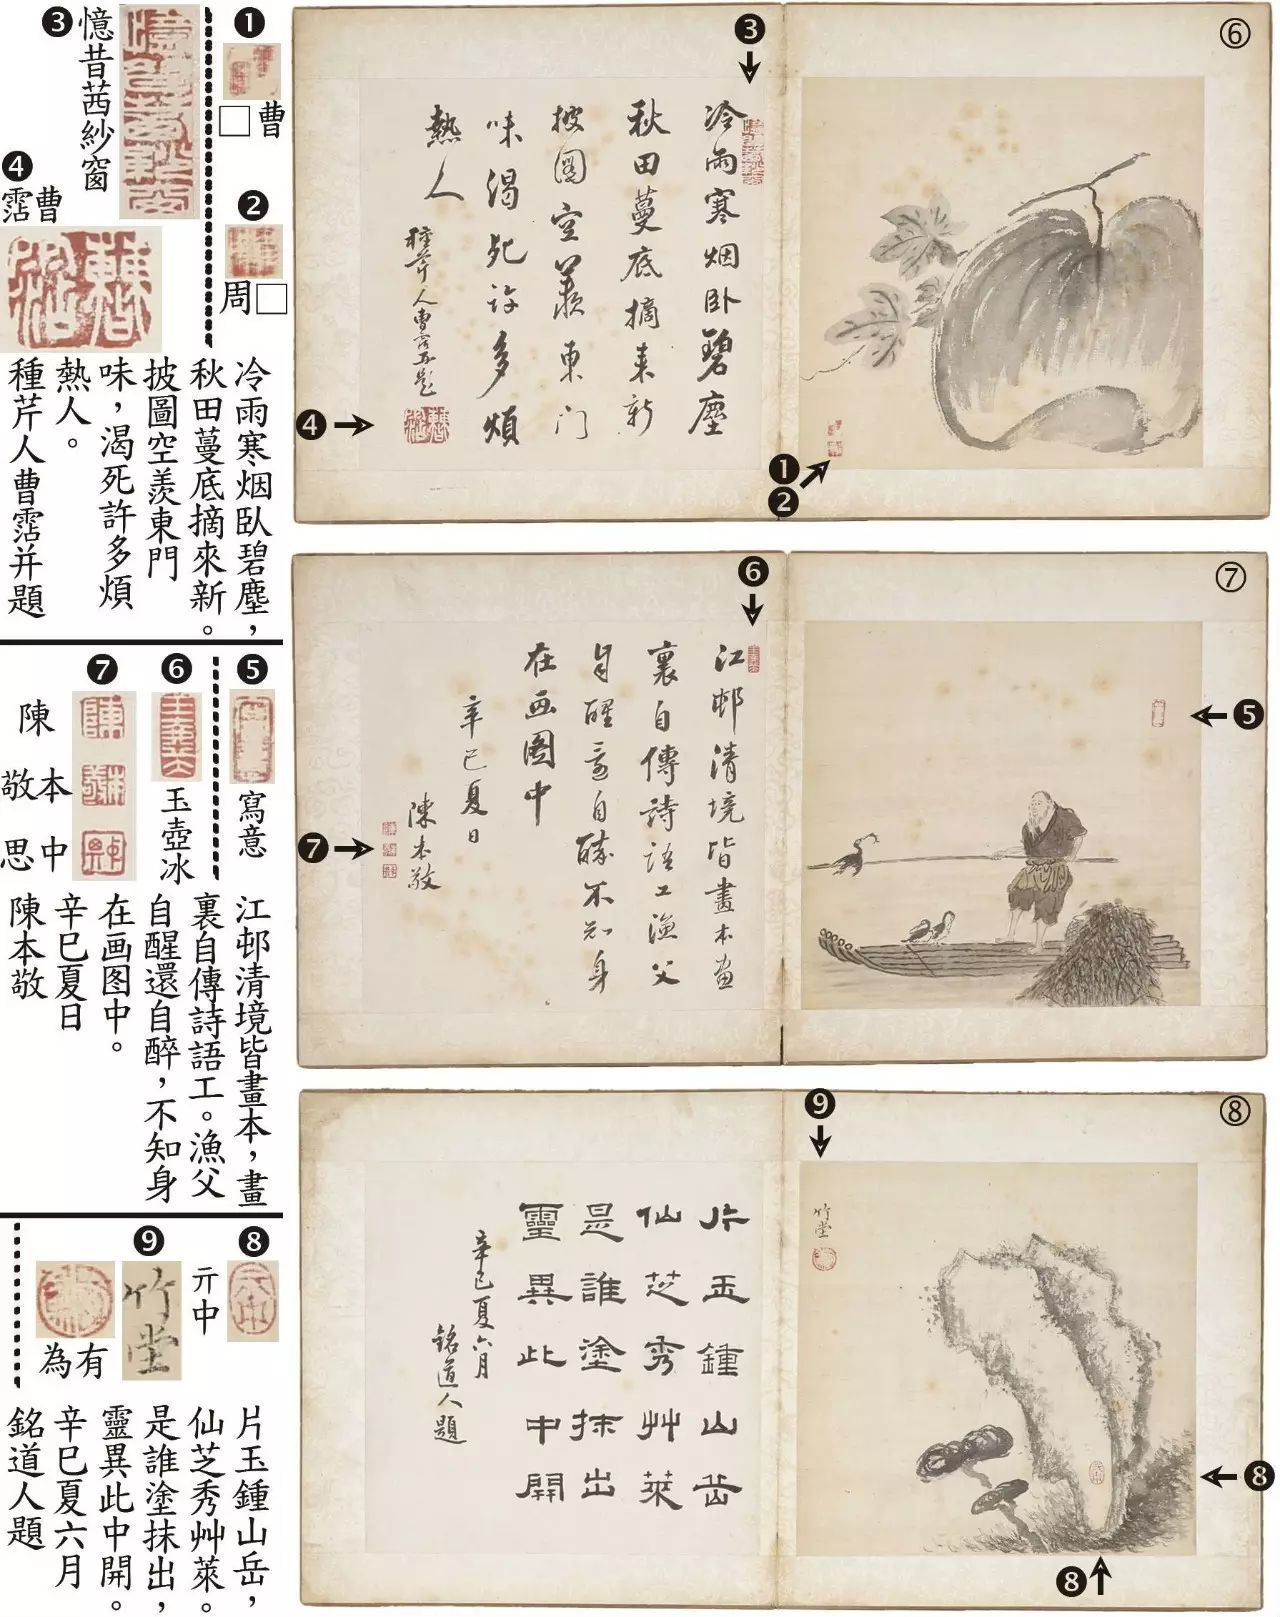 ❶
□曹
❷
周□
❸
憶昔茜紗窗
❹
曹霑
冷雨寒烟臥碧塵，
秋田蔓底摘來新。
披圖空羨東門
味，渴死許多煩
熱人。
種芹人曹霑并題
❺
寫意
❻
玉壺冰
❼
陳
本敬
中思
江邨清境皆畫本，畫
裏自傳詩語工。漁父
自醒還自醉，不知身
在画图中。
辛巳夏日
陳本敬
❽
亓中
❾
竹堂
有為
片玉鍾山岳，
仙芝秀艸萊。
是誰塗抹出，
靈異此中開。
辛巳夏六月
銘道人題
⑥
❸
冷雨寒烟卧碧塵
秋田蔓底摘来新
披圖空羨東门
味渴死許多煩
熱人
種芹人曹霑并題
❹
❶
❷
⑦
❻
❺
江邨清境皆畫本畫
裏自傳詩語工漁父
自醒還自醉不知身
在画图中
辛巳夏日
陳本敬
❼
⑧
❾
竹堂
片玉鍾山岳
仙芝秀艸萊
是誰塗抹出
靈異此中開
辛巳夏六月
銘道人題
❽
❽